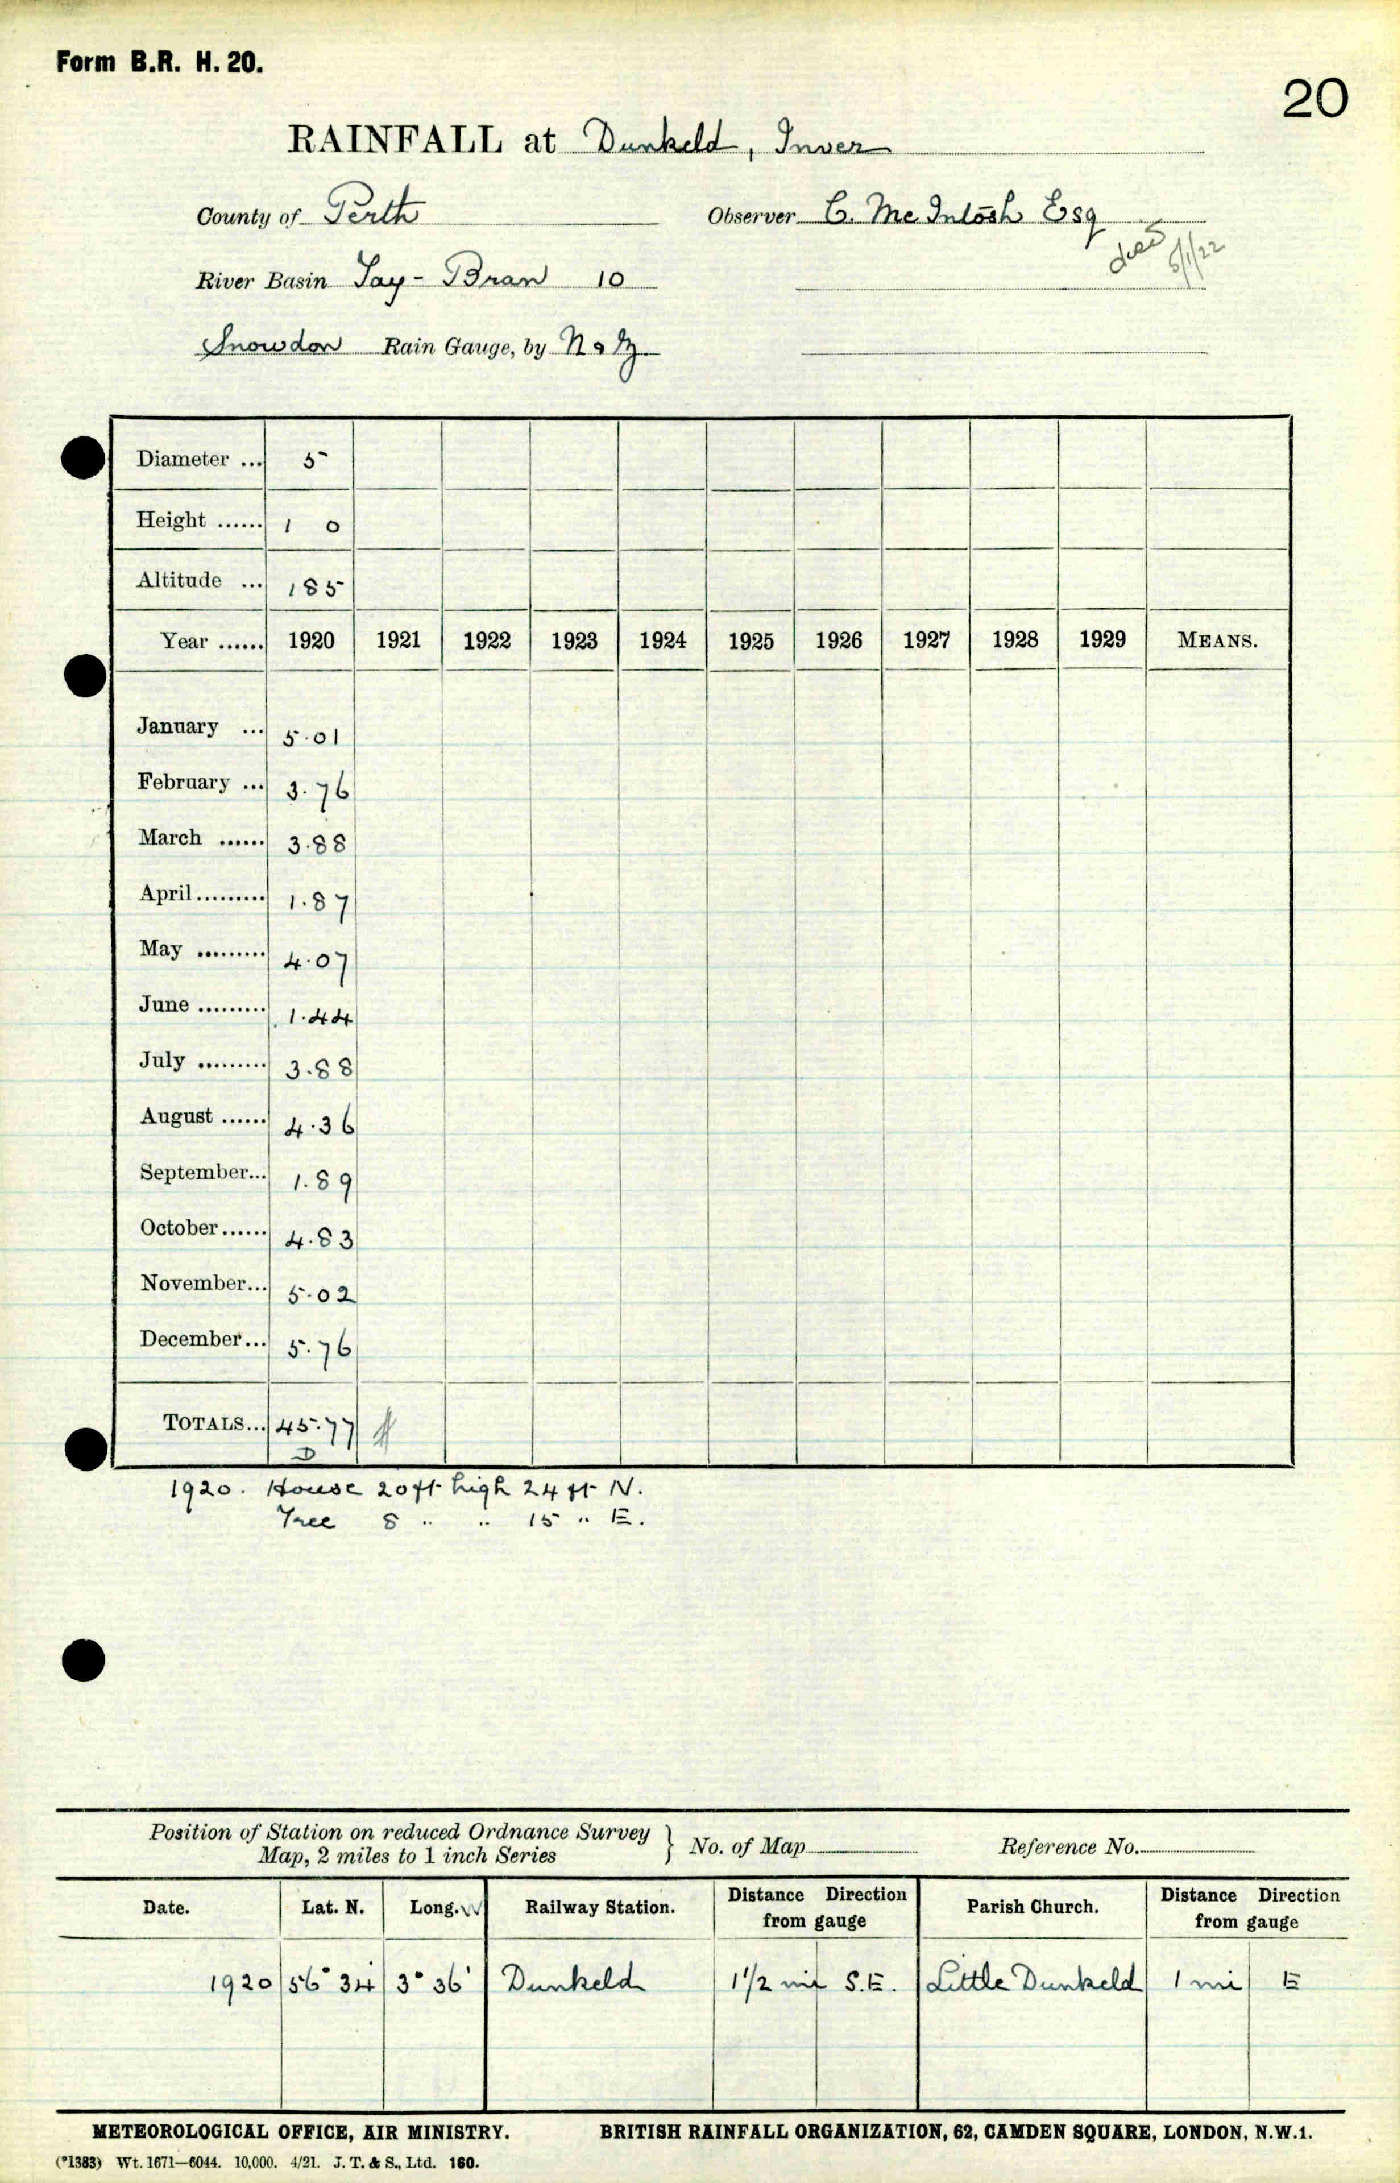 Form B.R. H. 20.
20
RAINFALL at Dunkeld, Inver
County of Perth Observer C. McIntosh Esq
died 5/1/22
River Basin Tay - Bran 10
Snowdon Rain Gauge, by N & Z
Diameter ... 5
Height ...... 1 0
Altitude ... 185
Year ...... 1920 1921 1922 1923 1924 1925 1926 1927 1928 1929 MEANS.
January ... 5.01
February ... 3.76
March ...... 3.88
April......... 1.87
May ......... 4.07
June ......... 1.44
July ......... 3.88
August ...... 4.36
September... 1.89
October...... 4.83
November... 5.02
December... 5.76
TOTALS... 45.77
D
1920. House 20 ft high 24 ft N.
Tree 8 " " 15 " E.
Position of Station on reduced Ordnance Survey
Map, 2 miles to 1 inch Series } No. of Map Reference No.
Date. Lat. N. Long. W Railway Station. Distance Direction from gauge Parish Church. Distance Direction from gauge
1920 56° 34' 3° 36' Dunkeld 1 1/2 mi S.E. Little Dunkeld 1 mi E
METEOROLOGICAL OFFICE, AIR MINISTRY. BRITISH RAINFALL ORGANIZATION, 62, CAMDEN SQUARE, LONDON, N.W.1.
(*1383) Wt. 1671—6044. 10,000. 4/21. J. T. & S., Ltd. 160.